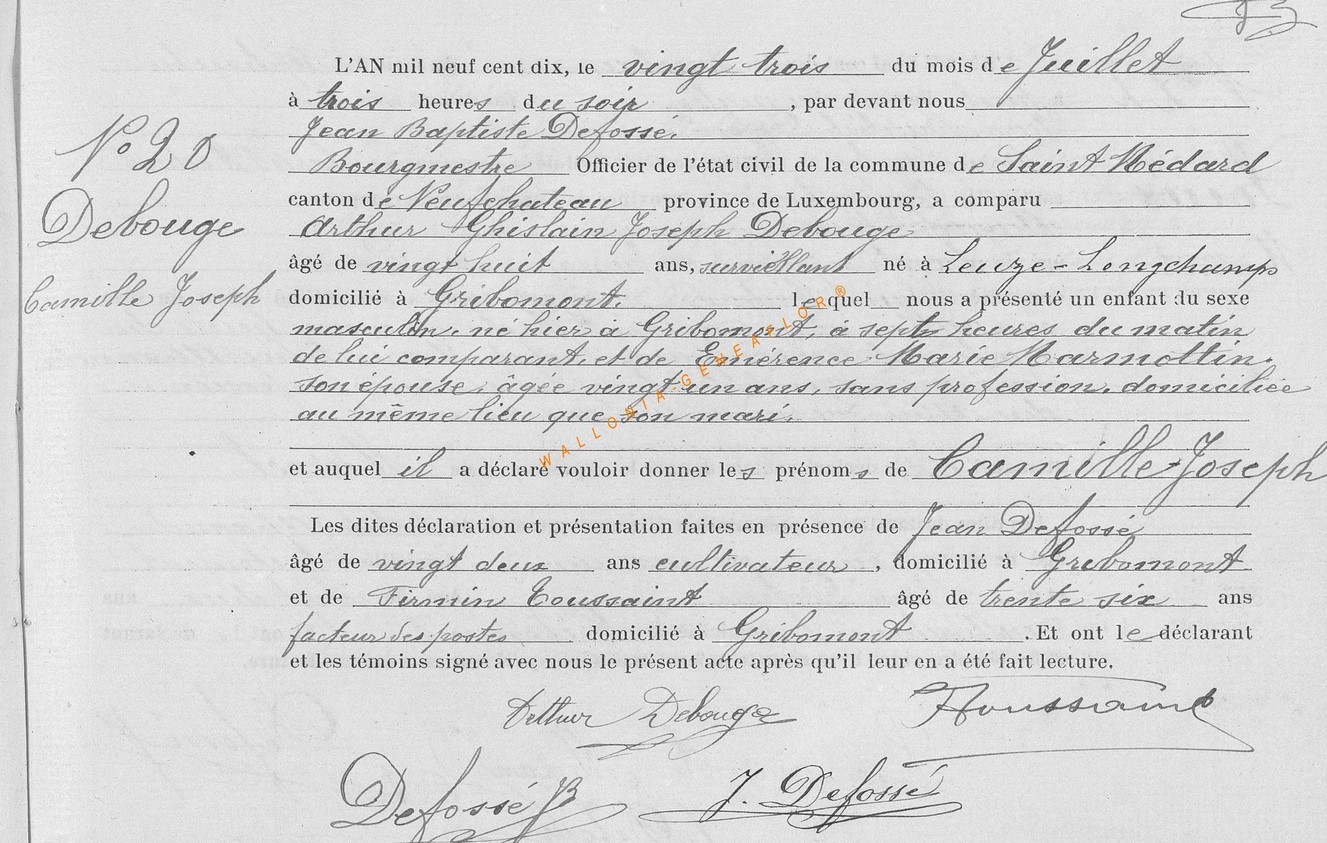 L'AN mil neuf cent dix, le vingt trois du mois de Juillet
à trois heures du soir, par devant nous
Jean Baptiste Defossé,
Bourgmestre Officier de l'état civil de la commune de Saint Médard
canton de Neufchateau province de Luxembourg, a comparu
Arthur Ghislain Joseph Debouge
âgé de vingt huit ans, surveillant né à Leuze-Longchamps
domicilié à Gribomont, lequel nous a présenté un enfant du sexe
masculin, né hier à Gribomont, à sept heures du matin
de lui comparant, et de Emérence Marie Marmottin,
son épouse, âgée vingt un ans, sans profession, domiciliée
au même lieu que son mari.
et auquel il a déclaré vouloir donner les prénoms de Camille-Joseph
Les dites déclaration et présentation faites en présence de Jean Defossé
âgé de vingt deux ans cultivateur, domicilié à Gribomont
et de Firmin Toussaint âgé de trente six ans
facteur des postes domicilié à Gribomont. Et ont le déclarant
et les témoins signé avec nous le présent acte après qu'il leur en a été fait lecture.
No 20
Debouge
Camille Joseph
Arthur Debouge
FToussaint
Defossé JB
J. Defossé
WALLONIA-GENEALOR®